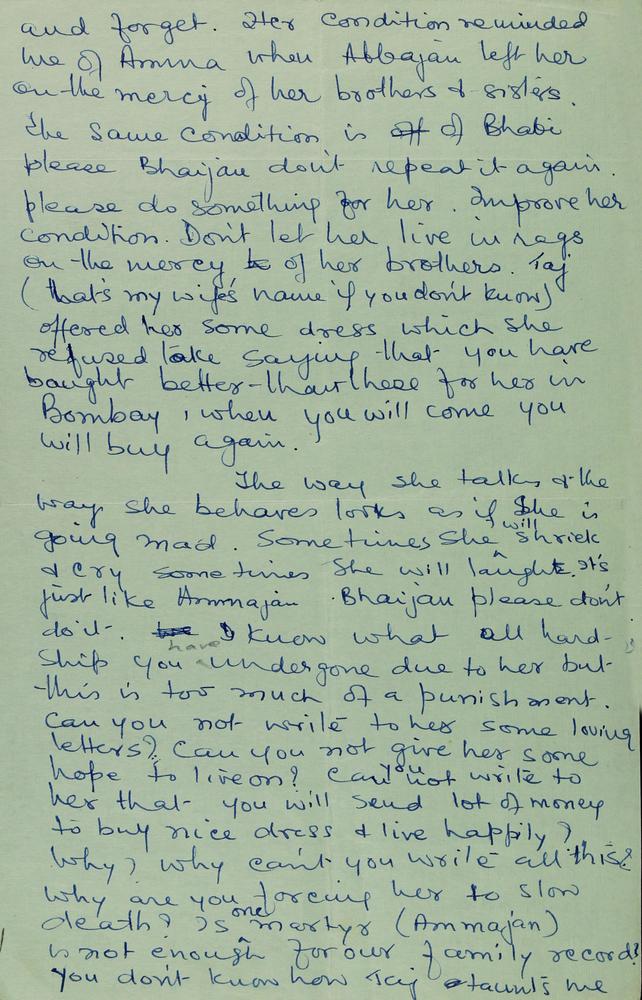 and forget. Her condition reminded
me of Amma when Abbajan left her
on the mercy of her brothers & sisters.
The same condition is of Bhabi
please Bhaijan don't repeat it again.
please do something for her. Improve her
condition. Don't let her live in rags
on the mercy of her brothers. Taj
(that's my wife's name if you don't know)
offered her some dress which she
refused take saying that you have
bought better than these for her in
Bombay, when you will come you
will buy again.
The way she talks & the
way she behaves looks as if she is
going mad. Sometimes she will shriek
& cry sometimes she will laugh. It's
just like Ammajan. Bhaijan please don't
do it. I know what all hard-
ship you have undergone due to her but
this is too much of a punishment.
Can you not write to her some loving
letters? Can you not give her some
hope to live on? Can you not write to
her that you will send lot of money
to buy nice dress & live happily?
Why, why can't you write all this?
Why are you forcing her to slow
death? Is one martyr (Ammajan)
is not enough for our family record?
You don't know how Taj taunts me